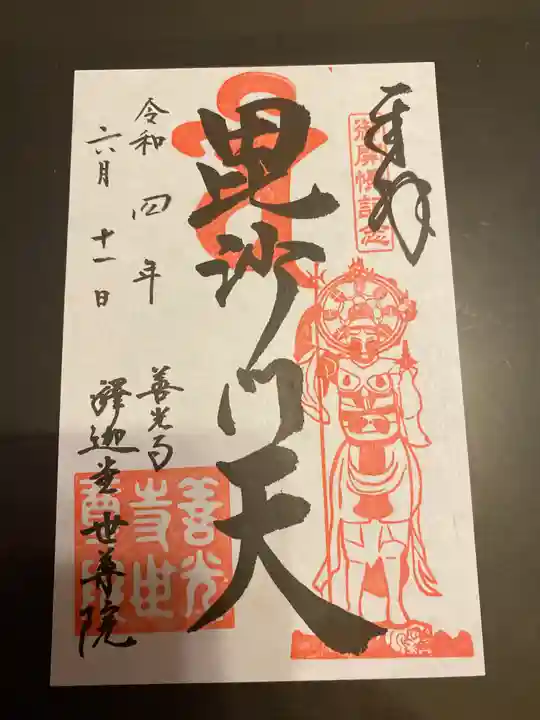 奉拝
御開帳記念
毘沙门天
善光寺
釋迦堂世尊院
善光
寺世
尊院
令和四年
六月十一日